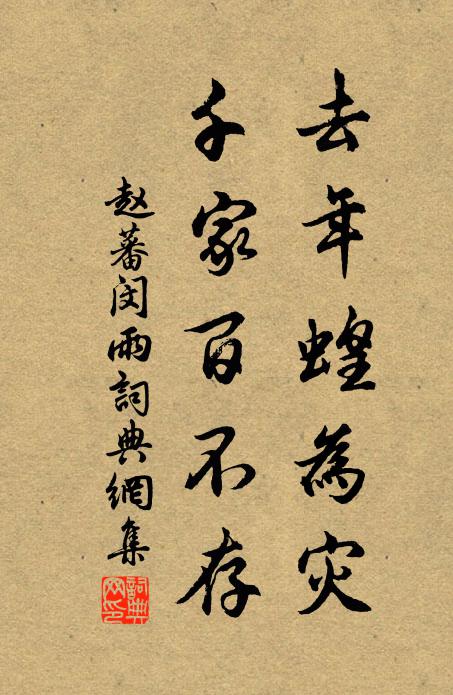 去年蝗為灾
千家百不存
赵蕃闵雨詞典網集
詞典网印